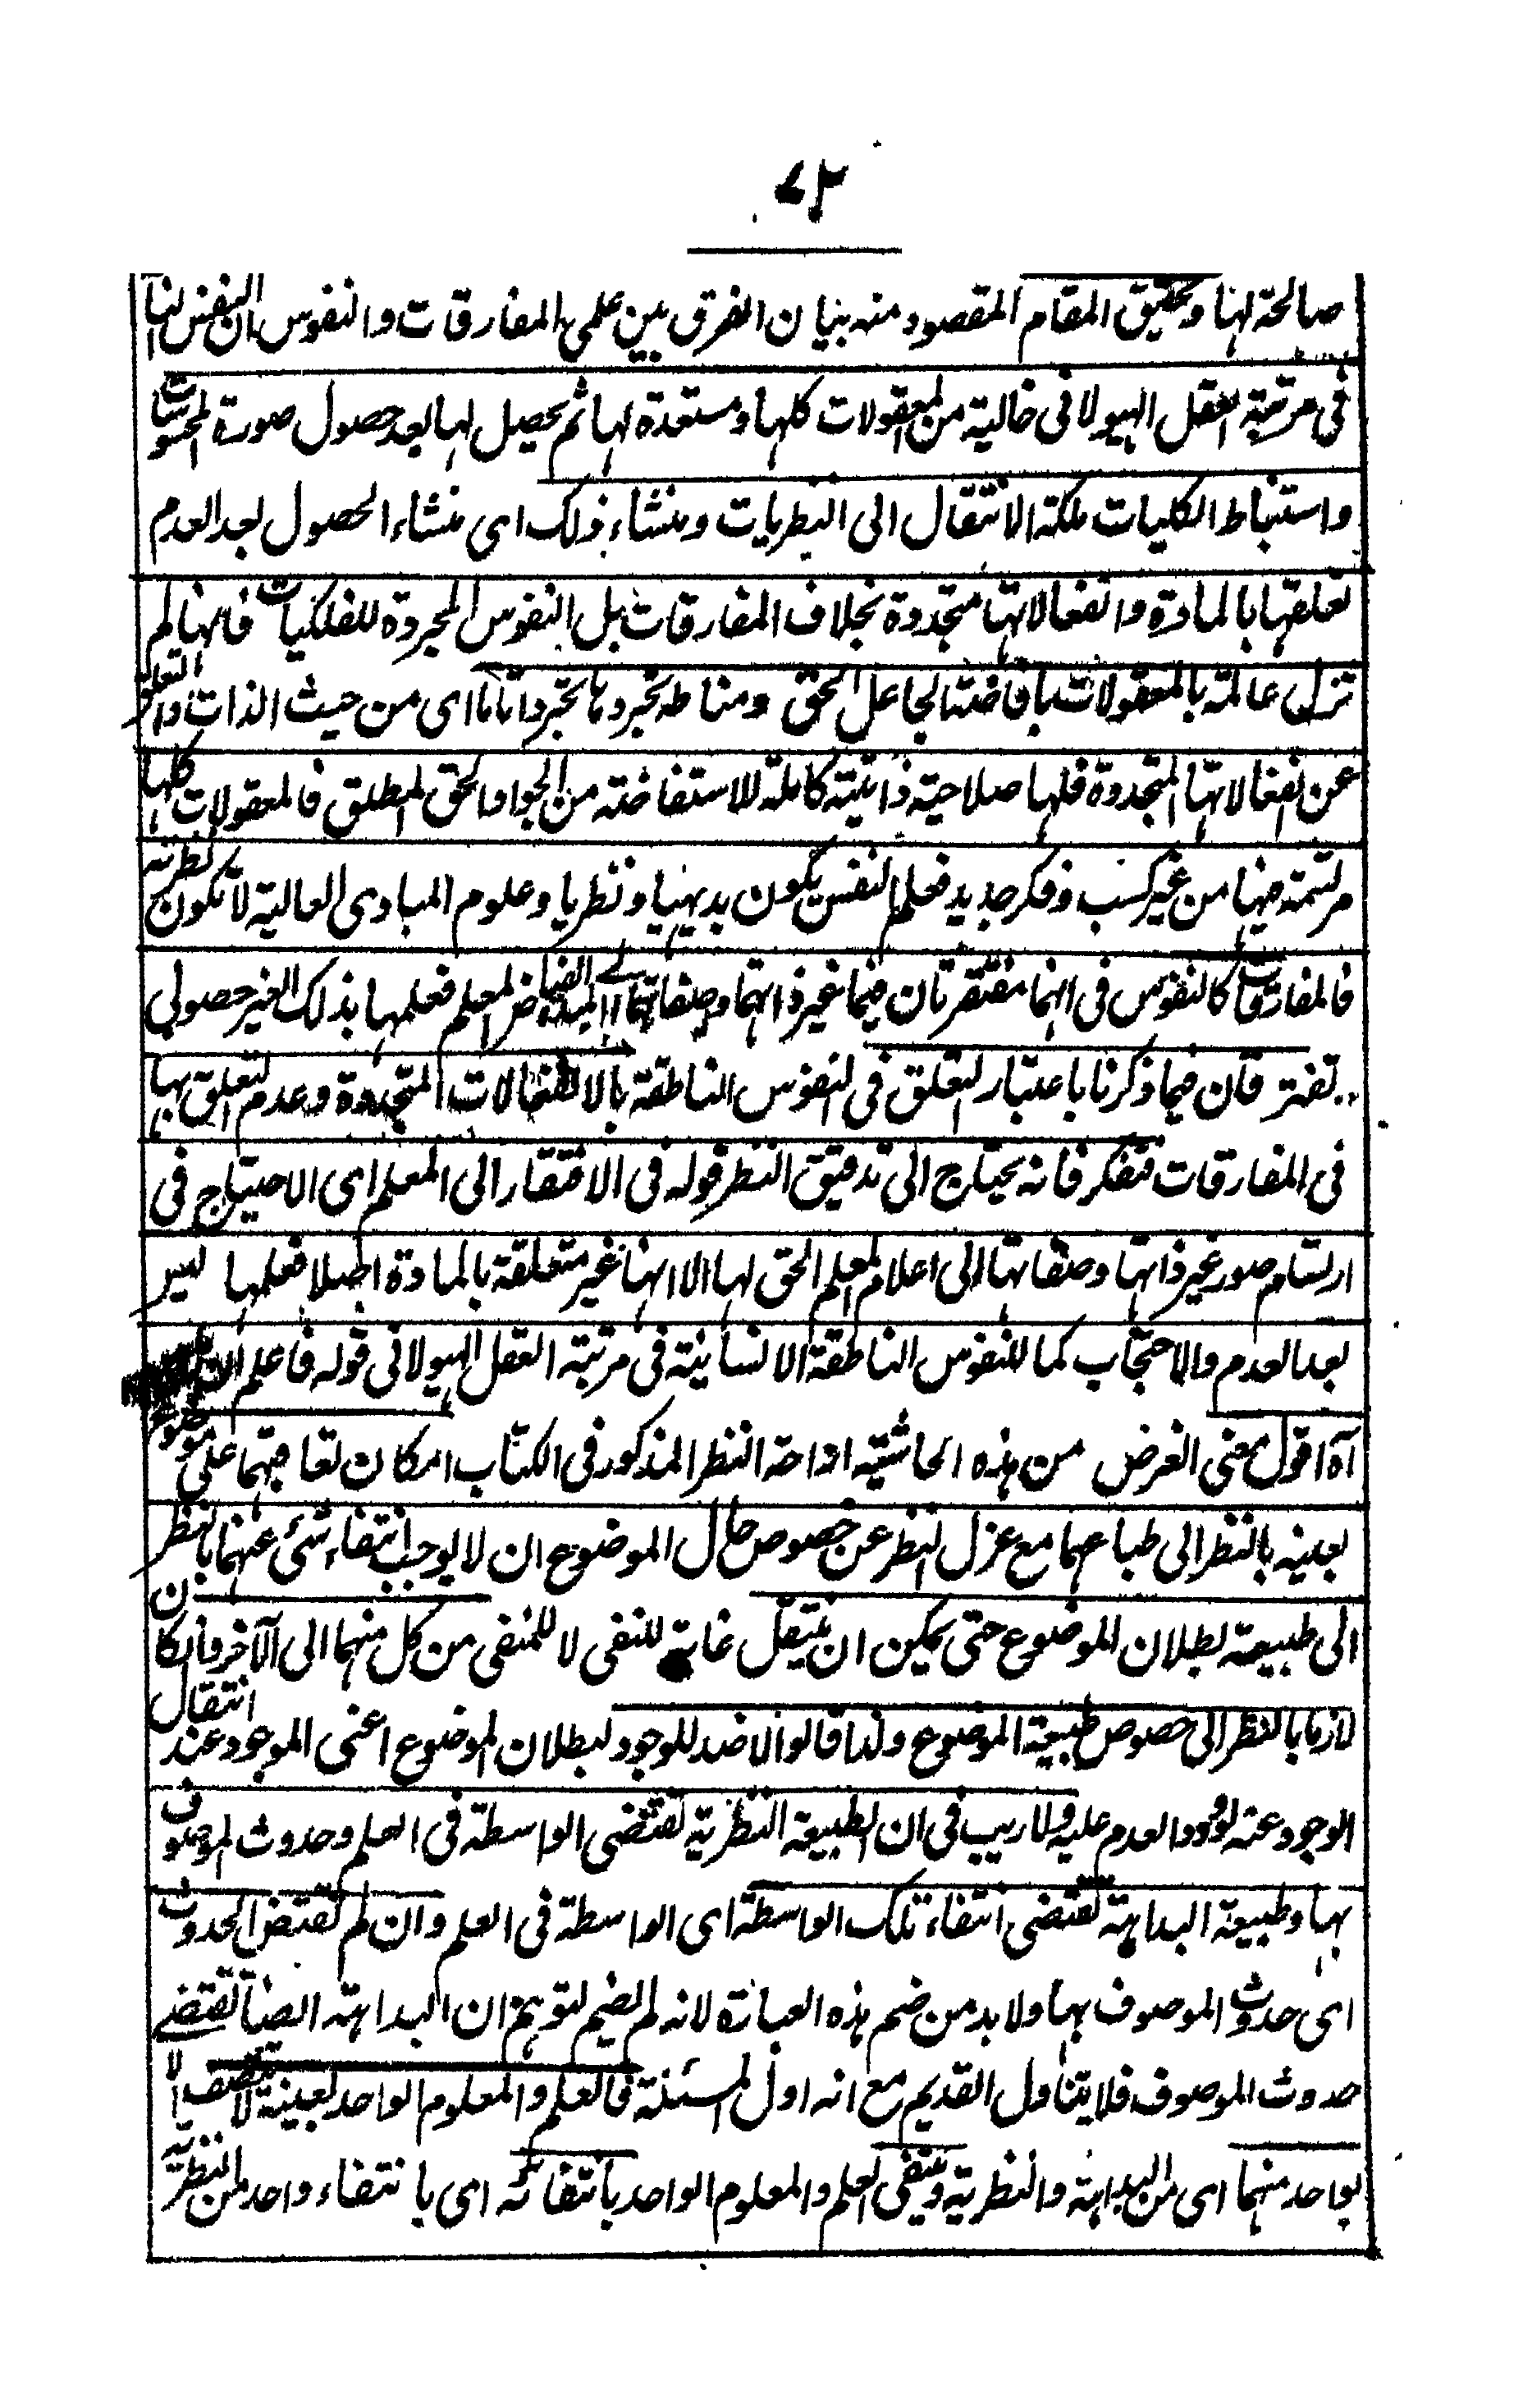 ٧٢
صالحة لها وتحقيق المقام المقصود منه بيان الفرق بين علمي المفارقات والنفوس ان النفس لنا
في مرتبة العقل الهيولاني خالية من المعقولات كلها ومستعدة لها ثم يحصل لها بعد حصول صورة المحسوسات
واستنباط الكليات ملكة الانتقال الى النظريات ومنشاء ذلك اى منشاء الحصول بعد العدم
تعلقها بالمادة وانفعالاتها متجددة بخلاف المفارقات بل النفوس المجردة للفلكيات فانها لم
تزل عالمة بالمعقولات بافاضة الجاعل الحق ومناطه تجردها تجردا تاما اى من حيث الذات والتعلق
عن انفعالاتها المتجددة فلها صلاحية ذاتية كاملة للاستفاضة من الجواد الحق المطلق فالمعقولات كلها
مرتسمة فيها من غير كسب وفكر جديد فعلم النفس يكون بديهيا ونظريا وعلوم المبادى العالية لا تكون نظرية
فالمفارقات كالنفوس في انهما مفتقرتان فيما غير ذاتهما وصفاتهما الى المبدء الفياض المعلم فعلمها بذلك الغير حصولي
تفترقان فيما ذكرنا باعتبار التعلق في النفوس الناطقة بالانفعالات المتجددة وعدم التعلق بها
في المفارقات فتفكر فانه يحتاج الى تدقيق النظر قوله في الافتقار الى المعلم اى الاحتياج في
ارتسام صور غير ذاتها وصفاتها الى اعلام المعلم الحق لها الا انها غير متعلقة بالمادة اصلا فعلمها ليس
بعد العدم والاحتجاب كما للنفوس الناطقة الانسانية في مرتبة العقل الهيولاني قوله فاعلم
آه اقول معنى الغرض من هذه الحاشية ازاحة النظر المذكور في الكتاب امكان تعاقبهما على موضوع
بعينه بالنظر الى طباعهما مع عزل النظر عن خصوص حال الموضوع ان لا يوجب انتفاء شئ عنهما بالنظر
الى طبيعته بطلان الموضوع حتى يمكن ان ينتقل غاية للنفى لا للمنفى من كل منهما الى الآخر وان كان
لازما بالنظر الى خصوص طبيعة الموضوع ولذا قالوا لا ضد للوجود لبطلان الموضوع اعنى الموجود عند انتقال
الوجود عنه لورود العدم عليه ولا ريب في ان الطبيعة النظرية تقتضى الواسطة في العلم وحدوث الموصوف
بها وطبيعة البداهة تقتضى انتفاء تلك الواسطة اى الواسطة في العلم وان لم تقتض الحدوث
اى حدوث الموصوف بها ولا بد من ضم هذه العبارة لانه لم يضم لتوهم ان البداهة ايضا تقتضى
حدوث الموصوف فلا يتناول القديم مع انه اول المسئلة في العلم والمعلوم الواحد بعينه لا يتصف الا
بواحد منهما اى من البداهة والنظرية وينتفى العلم والمعلوم الواحد بانتفائه اى بانتفاء واحد من النظرية